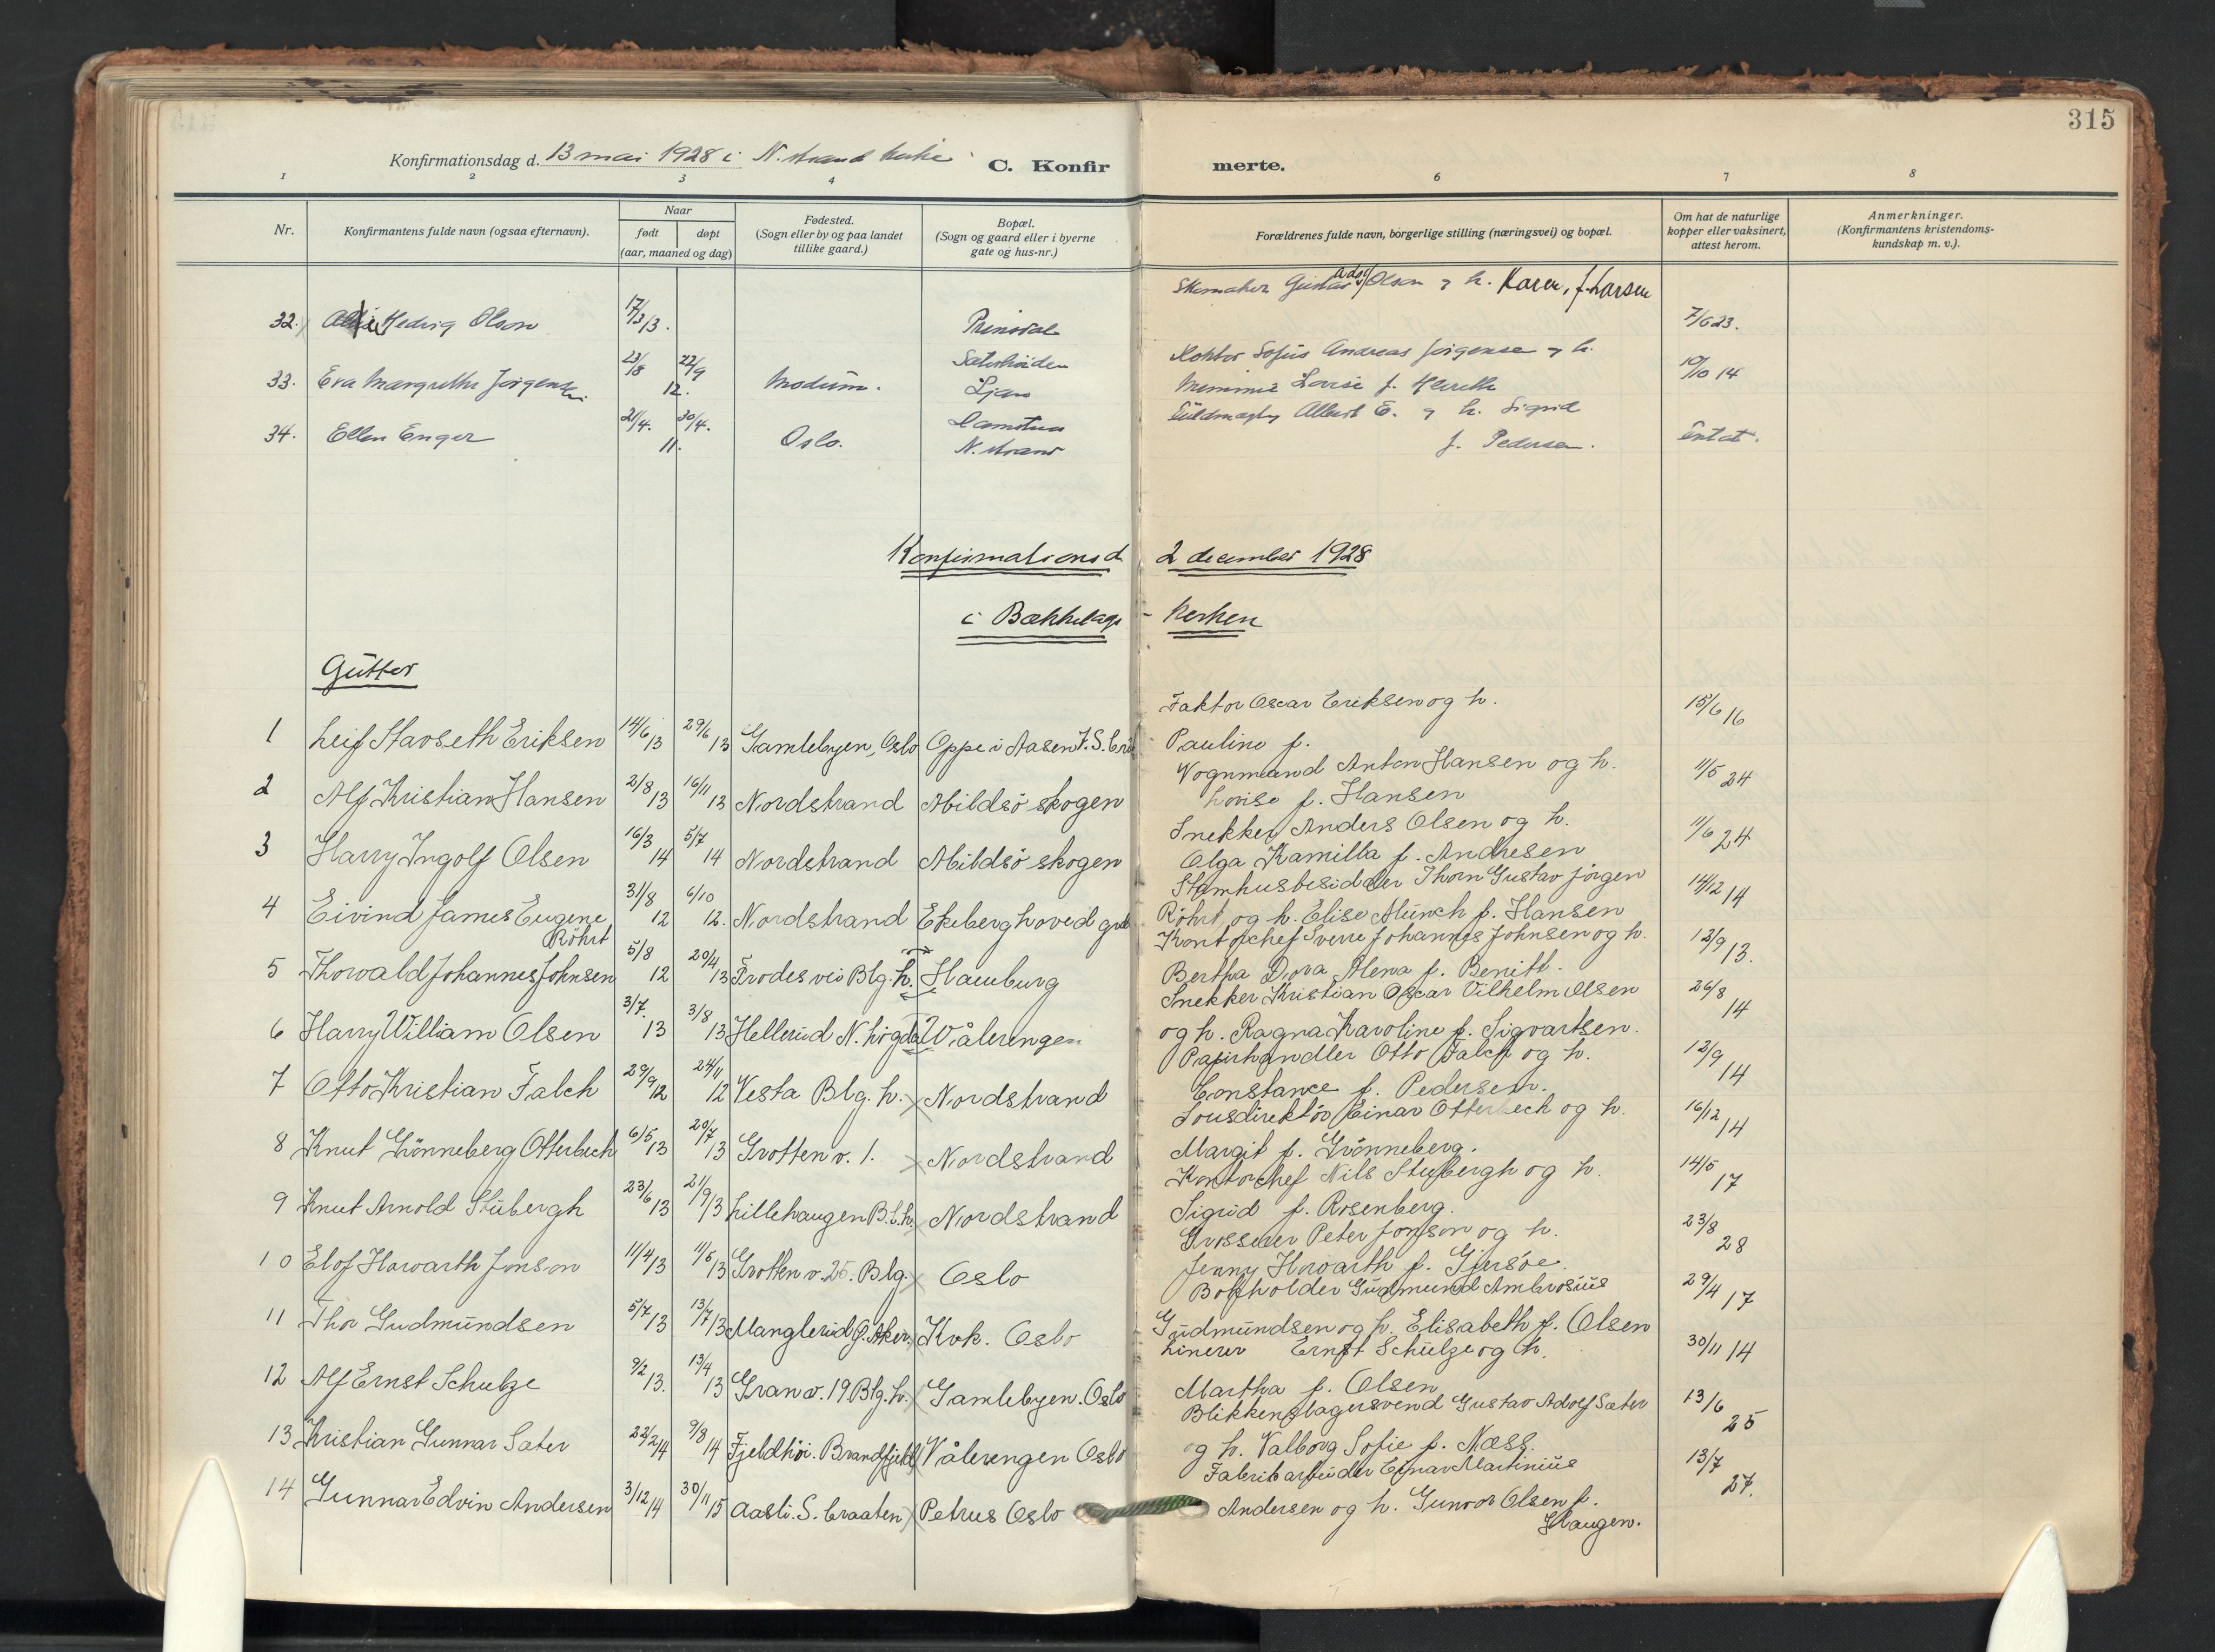 315
Konfirmationsdag d. 13 mai 1928 i N. strand kirke C. Konfir merte.
1 2 3 4 6 7 8
Nr. Konfirmantens fulde navn (ogsaa efternavn). Naar født døpt (aar, maaned og dag) Fødested. (Sogn eller by og paa landet tillike gaard.) Bopæl. (Sogn og gaard eller i byerne gate og hus-nr.) Forældrenes fulde navn, borgerlige stilling (næringsvei) og bopæl. Om hat de naturlige kopper eller vaksinert, attest herom. Anmerkninger. (Konfirmantens kristendomskundskap m. v.).
Skomaker Gustav Adolf Olsen og h. Karen, f. Larsen
32. Hedvig Olsen 17/3 13. Prinsdal 7/6 23.
33. Eva Margrethe Jørgensen 23/8 22/9 12. Modum. Sæterheiden Ljan
Kontor Sofus Andreas Jörgensen og h. Louise f. 10/10 14
34. Ellen Enger 21/4. 30/4. 11. Oslo. N. strand
Fuldmægtig Albert E. og h. Sigrid f. Pedersen. Entat.
Konfirmationsd. 2 december 1928
i Bækkelags - kirken
Gutter
1 Leif Harseth Eriksen 14/6 13 29/6 13 Gamlebyen, Oslo Oppe i Aasen
Faktor Oscar Eriksen og h. Pauline f. 15/6 16
2 Alf Kristian Hansen 2/8 13 16/11 13 Nordstrand Abildsö skogen
Vognmand Anton Hansen og h. Lovise f. Hansen 11/5 24
3 Harry Ingolf Olsen 16/3 14 5/7 14 Nordstrand Abildsö skogen
Snekker Anders Olsen og h. Olga Kamilla f. Andresen 11/6 24
4 Eivind James Eugene Röhrt 31/8 12 6/10 12. Nordstrand Ekeberg hovedg
Stamhusbesidder Thorn Gustav Jörgen Röhrt og h. Elise Münch f. Hansen 14/12 14
5 Thorvald Johannes Johnsen 5/8 12 20/4 13 Frodes vei Blg. h. Hamburg
Kontorchef Sverre Johannes Johnsen og h. Bertha Dora Alena f. Benitt. 12/9 13.
6 Harry William Olsen 3/7. 13 3/8 13 Hellerud N. högda Vålerengen
Snekker Kristian Oscar Vilhelm Olsen og h. Ragna Karoline f. Sigvartsen. 26/8 14
7 Otto Kristian Falch 29/9 12 24/11 12 Vesta Blg. h. Nordstrand
Papirhandler Otto Falch og h. Constance f. Pedersen. 12/9 14
8 Knut Grönneberg Otterbech 6/5 13 20/7 13 Grotten v. 1. Nordstrand
Sousdirektör Einar Otterbech og h. Margit f. Grönneberg. 16/12 14
9 Knut Arnold Stubergh 23/6 13 21/9 13 Lillehaugen B.l.h. Nordstrand
Kontorchef Nils Stubergh og h. Sigrid f. Rosenberg. 14/5 17
10 Elof Howarth Jonson 11/4 13 11/5 13 Grotten v. 25. Blg. Oslo
Grosserer Peter Jonson og h. Jenny Howarth f. Gjersöe. 23/8 28
11 Thor Gudmundsen 5/7 13 13/7 13 Manglerud G. Aker. Kvk. Oslo
Bokholder Gudmund Ambrosius Gudmundsen og h. Elisabeth f. Olsen 29/4 17
12 Alf Ernst Schulze 9/2 13. 13/4 13 Gran v. 19 Blg. h. Gamlebyen. Oslo
Linerer Ernst Schulze og h. Martha f. Olsen 30/11 14
13 Kristian Gunnar Sæter 22/2 14 9/8 14 Fjeldhöi. Brandfjeld Vålerengen Oslo
Blikkenslagersvend Gustav Adolf Sæter og h. Valborg Sofie f. Næss. 13/6 25
14 Gunnar Edvin Andersen 3/12 14 30/11 15 Aasli. S. braaten Petrus Oslo
Fabrikarbeider Einar Martinius Andersen og h. Gunvor Olsen f. Haugen. 13/7 27.